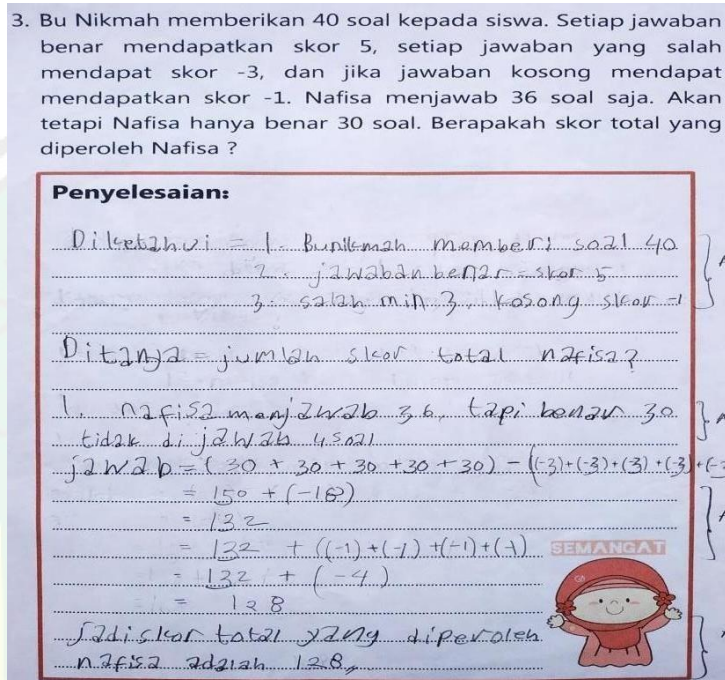 3. Bu Nikmah memberikan 40 soal kepada siswa. Setiap jawaban
benar mendapatkan skor 5, setiap jawaban yang salah
mendapat skor -3, dan jika jawaban kosong mendapat
mendapatkan skor -1. Nafisa menjawab 36 soal saja. Akan
tetapi Nafisa hanya benar 30 soal. Berapakah skor total yang
diperoleh Nafisa ?
Penyelesaian:
Diketahui = 1. Bunikmah memberi soal 40
2. jawaban benar = skor 5
3. salah min 3, kosong skor -1
Ditanya = jumlah skor total nafisa?
1. nafisa menjawab 36, tapi benar 30
tidak di jawab 4 soal
jawab = (30 + 30 + 30 + 30 + 30) - ((-3)+(-3)+(-3)+(-3)+(-3
= 150 + (-18)
= 132
= 132 + ((-1)+(-1)+(-1)+(-1)
SEMANGAT
= 132 + (-4)
= 128
Jadi skor total yang diperoleh
nafisa adalah 128,